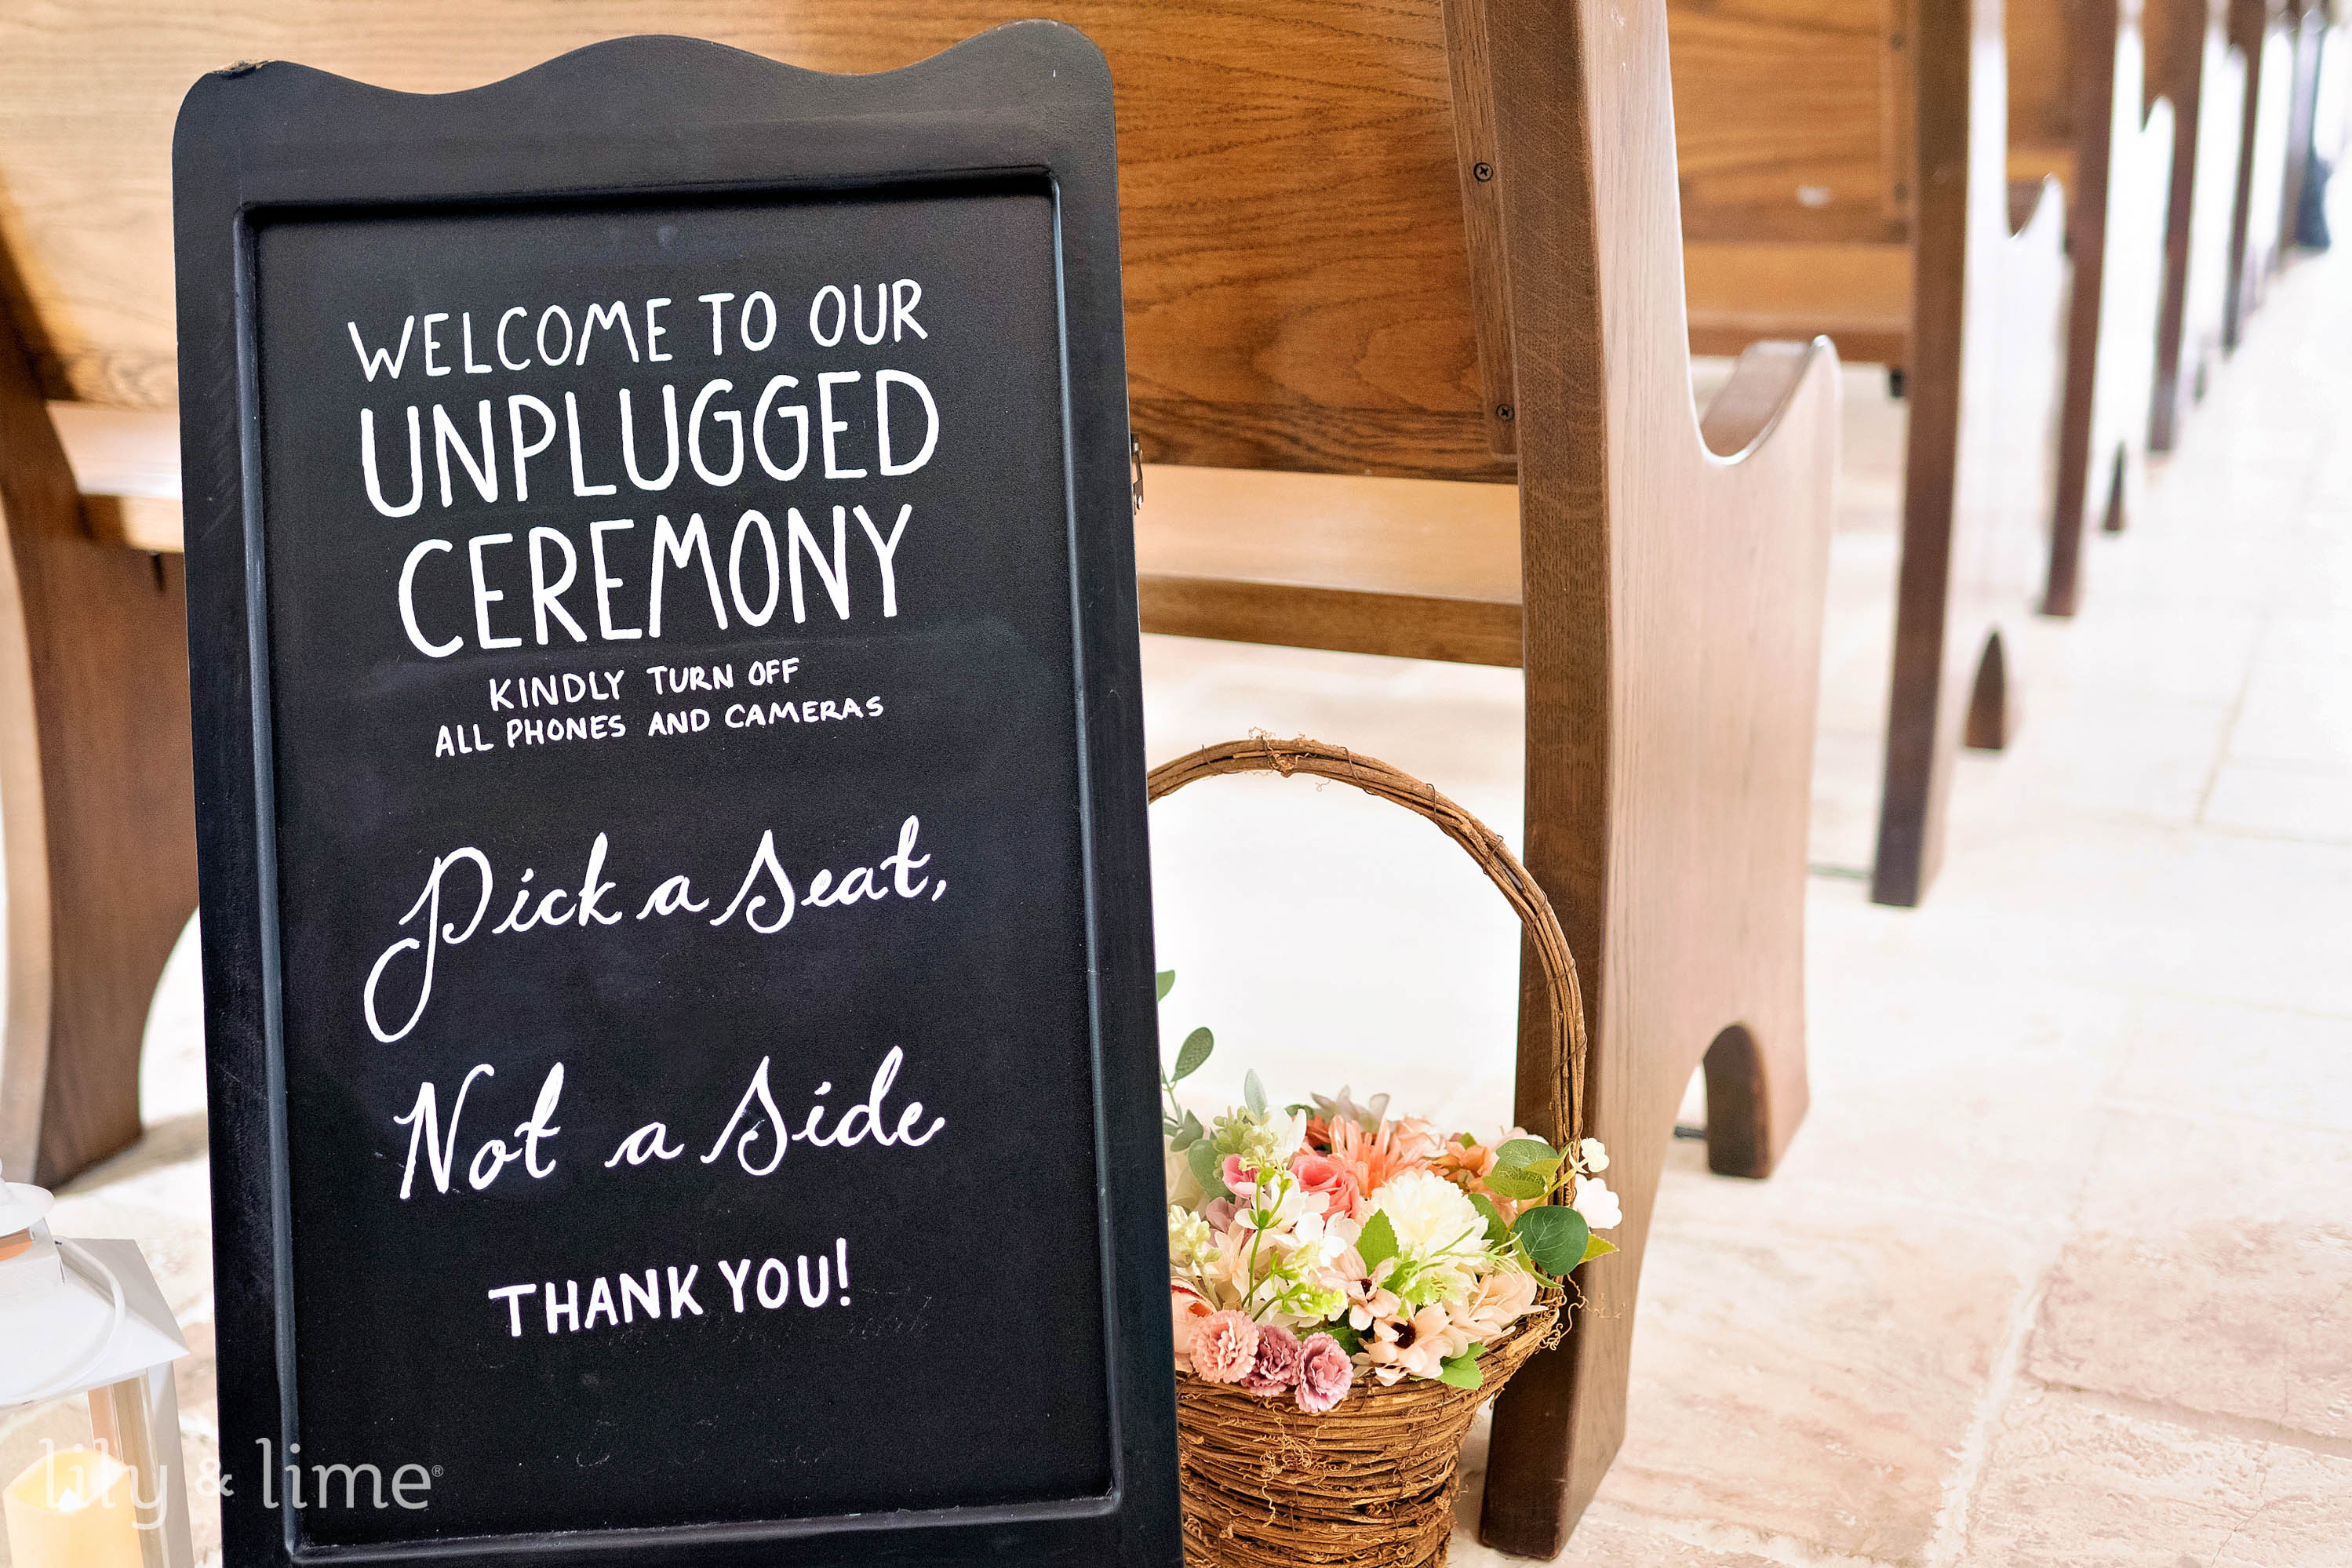 WELCOME TO OUR
UNPLUGGED
CEREMONY
KINDLY TURN OFF
ALL PHONES AND CAMERAS
Pick a Seat,
Not a Side
THANK YOU!
lily & lime®